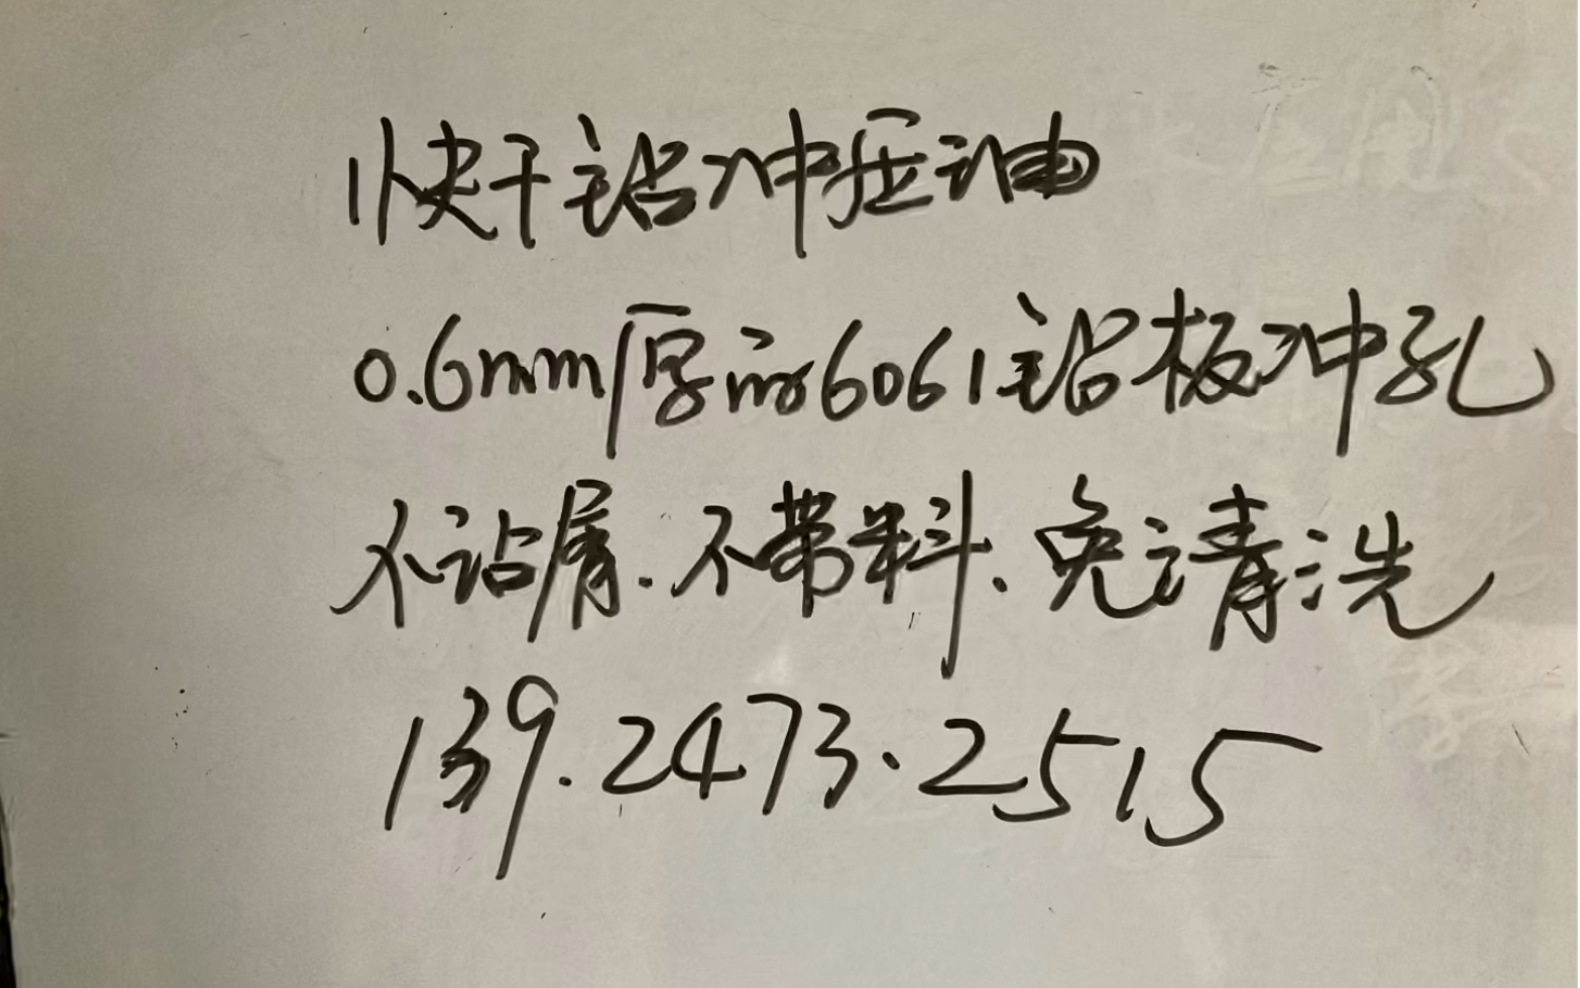 快干铝冲压油
0.6mm厚的6061铝板冲孔
不沾屑.不带料.免清洗
139.2473.2515